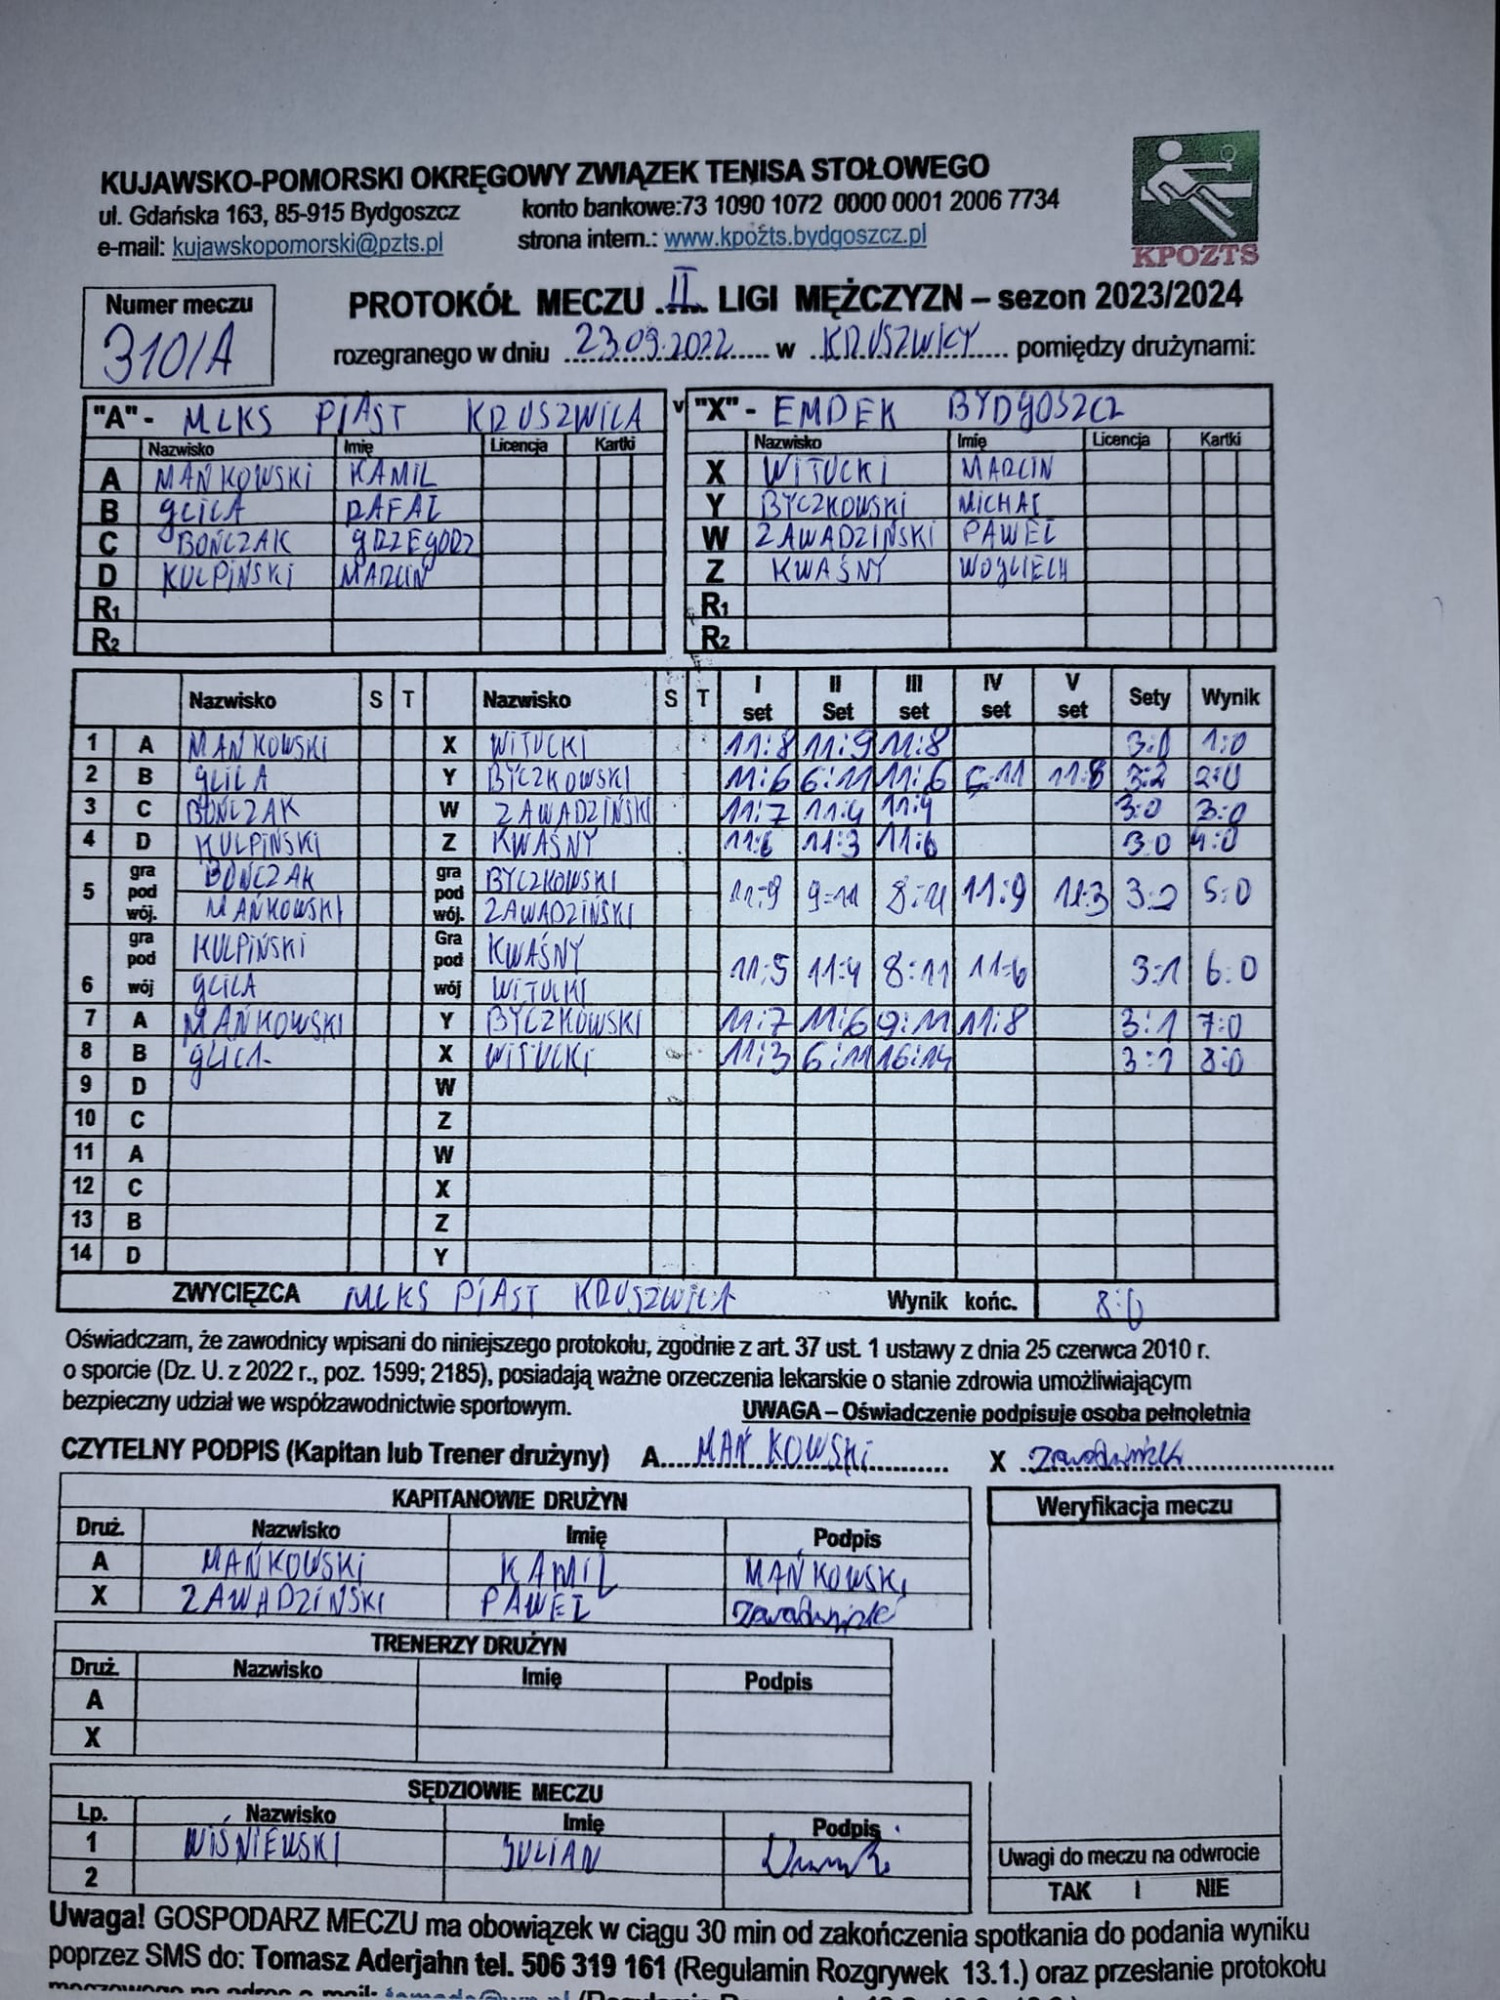 KUJAWSKO-POMORSKI OKRĘGOWY ZWIĄZEK TENISA STOŁOWEGO
ul. Gdańska 163, 85-915 Bydgoszcz konto bankowe:73 1090 1072 0000 0001 2006 7734
e-mail: kujawskopomorski@pzts.pl strona intern.: www.kpozts.bydgoszcz.pl
KPOZTS
Numer meczu
310/A
PROTOKÓŁ MECZU ..II.. LIGI MĘŻCZYZN – sezon 2023/2024
rozegranego w dniu ..23.09.2022..... w ..KRUSZWICY.... pomiędzy drużynami:
"A"- MLKS PIAST KRUSZWICA v "X"- EMDEK BYDGOSZCZ
Nazwisko Imię Licencja Kartki Nazwisko Imię Licencja Kartki
A MAŃKOWSKI KAMIL X WITUCKI MARCIN
B GLICA RAFAŁ Y BYCZKOWSKI MICHAŁ
C BOŃCZAK GRZEGORZ W ZAWADZIŃSKI PAWEŁ
D KULPIŃSKI MARCIN Z KWAŚNY WOJCIECH
R1 R1
R2 R2
Nazwisko S T Nazwisko S T I set II Set III set IV set V set Sety Wynik
1 A MAŃKOWSKI X WITUCKI 11:8 11:9 11:8 3:0 1:0
2 B GLICA Y BYCZKOWSKI 11:6 6:11 11:6 11:8 3:2 2:0
3 C BOŃCZAK W ZAWADZIŃSKI 11:7 11:4 11:4 3:0 3:0
4 D KULPIŃSKI Z KWAŚNY 11:6 11:3 11:6 3:0 4:0
5 gra pod wój. BOŃCZAK MAŃKOWSKI gra pod wój. BYCZKOWSKI ZAWADZIŃSKI 11:9 9:11 8:11 11:9 11:3 3:2 5:0
6 gra pod wój KULPIŃSKI GLICA Gra pod wój KWAŚNY WITUCKI 11:5 11:4 8:11 11:6 3:1 6:0
7 A MAŃKOWSKI Y BYCZKOWSKI 11:7 11:6 9:11 11:8 3:1 7:0
8 B GLICA X WITUCKI 11:3 6:11 16:14 3:1 8:0
9 D W
10 C Z
11 A W
12 C X
13 B Z
14 D Y
ZWYCIĘZCA MLKS PIAST KRUSZWICA Wynik końc. 8:0
Oświadczam, że zawodnicy wpisani do niniejszego protokołu, zgodnie z art. 37 ust. 1 ustawy z dnia 25 czerwca 2010 r.
o sporcie (Dz. U. z 2022 r., poz. 1599; 2185), posiadają ważne orzeczenia lekarskie o stanie zdrowia umożliwiającym
bezpieczny udział we współzawodnictwie sportowym. UWAGA – Oświadczenie podpisuje osoba pełnoletnia
CZYTELNY PODPIS (Kapitan lub Trener drużyny) A.....MAŃKOWSKI........... X ..Zawadziński..................
KAPITANOWIE DRUŻYN
Druż. Nazwisko Imię Podpis
A MAŃKOWSKI KAMIL MAŃKOWSKI
X ZAWADZIŃSKI PAWEŁ Zawadziński
Weryfikacja meczu
TRENERZY DRUŻYN
Druż. Nazwisko Imię Podpis
A
X
SĘDZIOWIE MECZU
Lp. Nazwisko Imię Podpis
1 WIŚNIEWSKI JULIAN
2
Uwagi do meczu na odwrocie
TAK I NIE
Uwaga! GOSPODARZ MECZU ma obowiązek w ciągu 30 min od zakończenia spotkania do podania wyniku
poprzez SMS do: Tomasz Aderjahn tel. 506 319 161 (Regulamin Rozgrywek 13.1.) oraz przesłanie protokołu